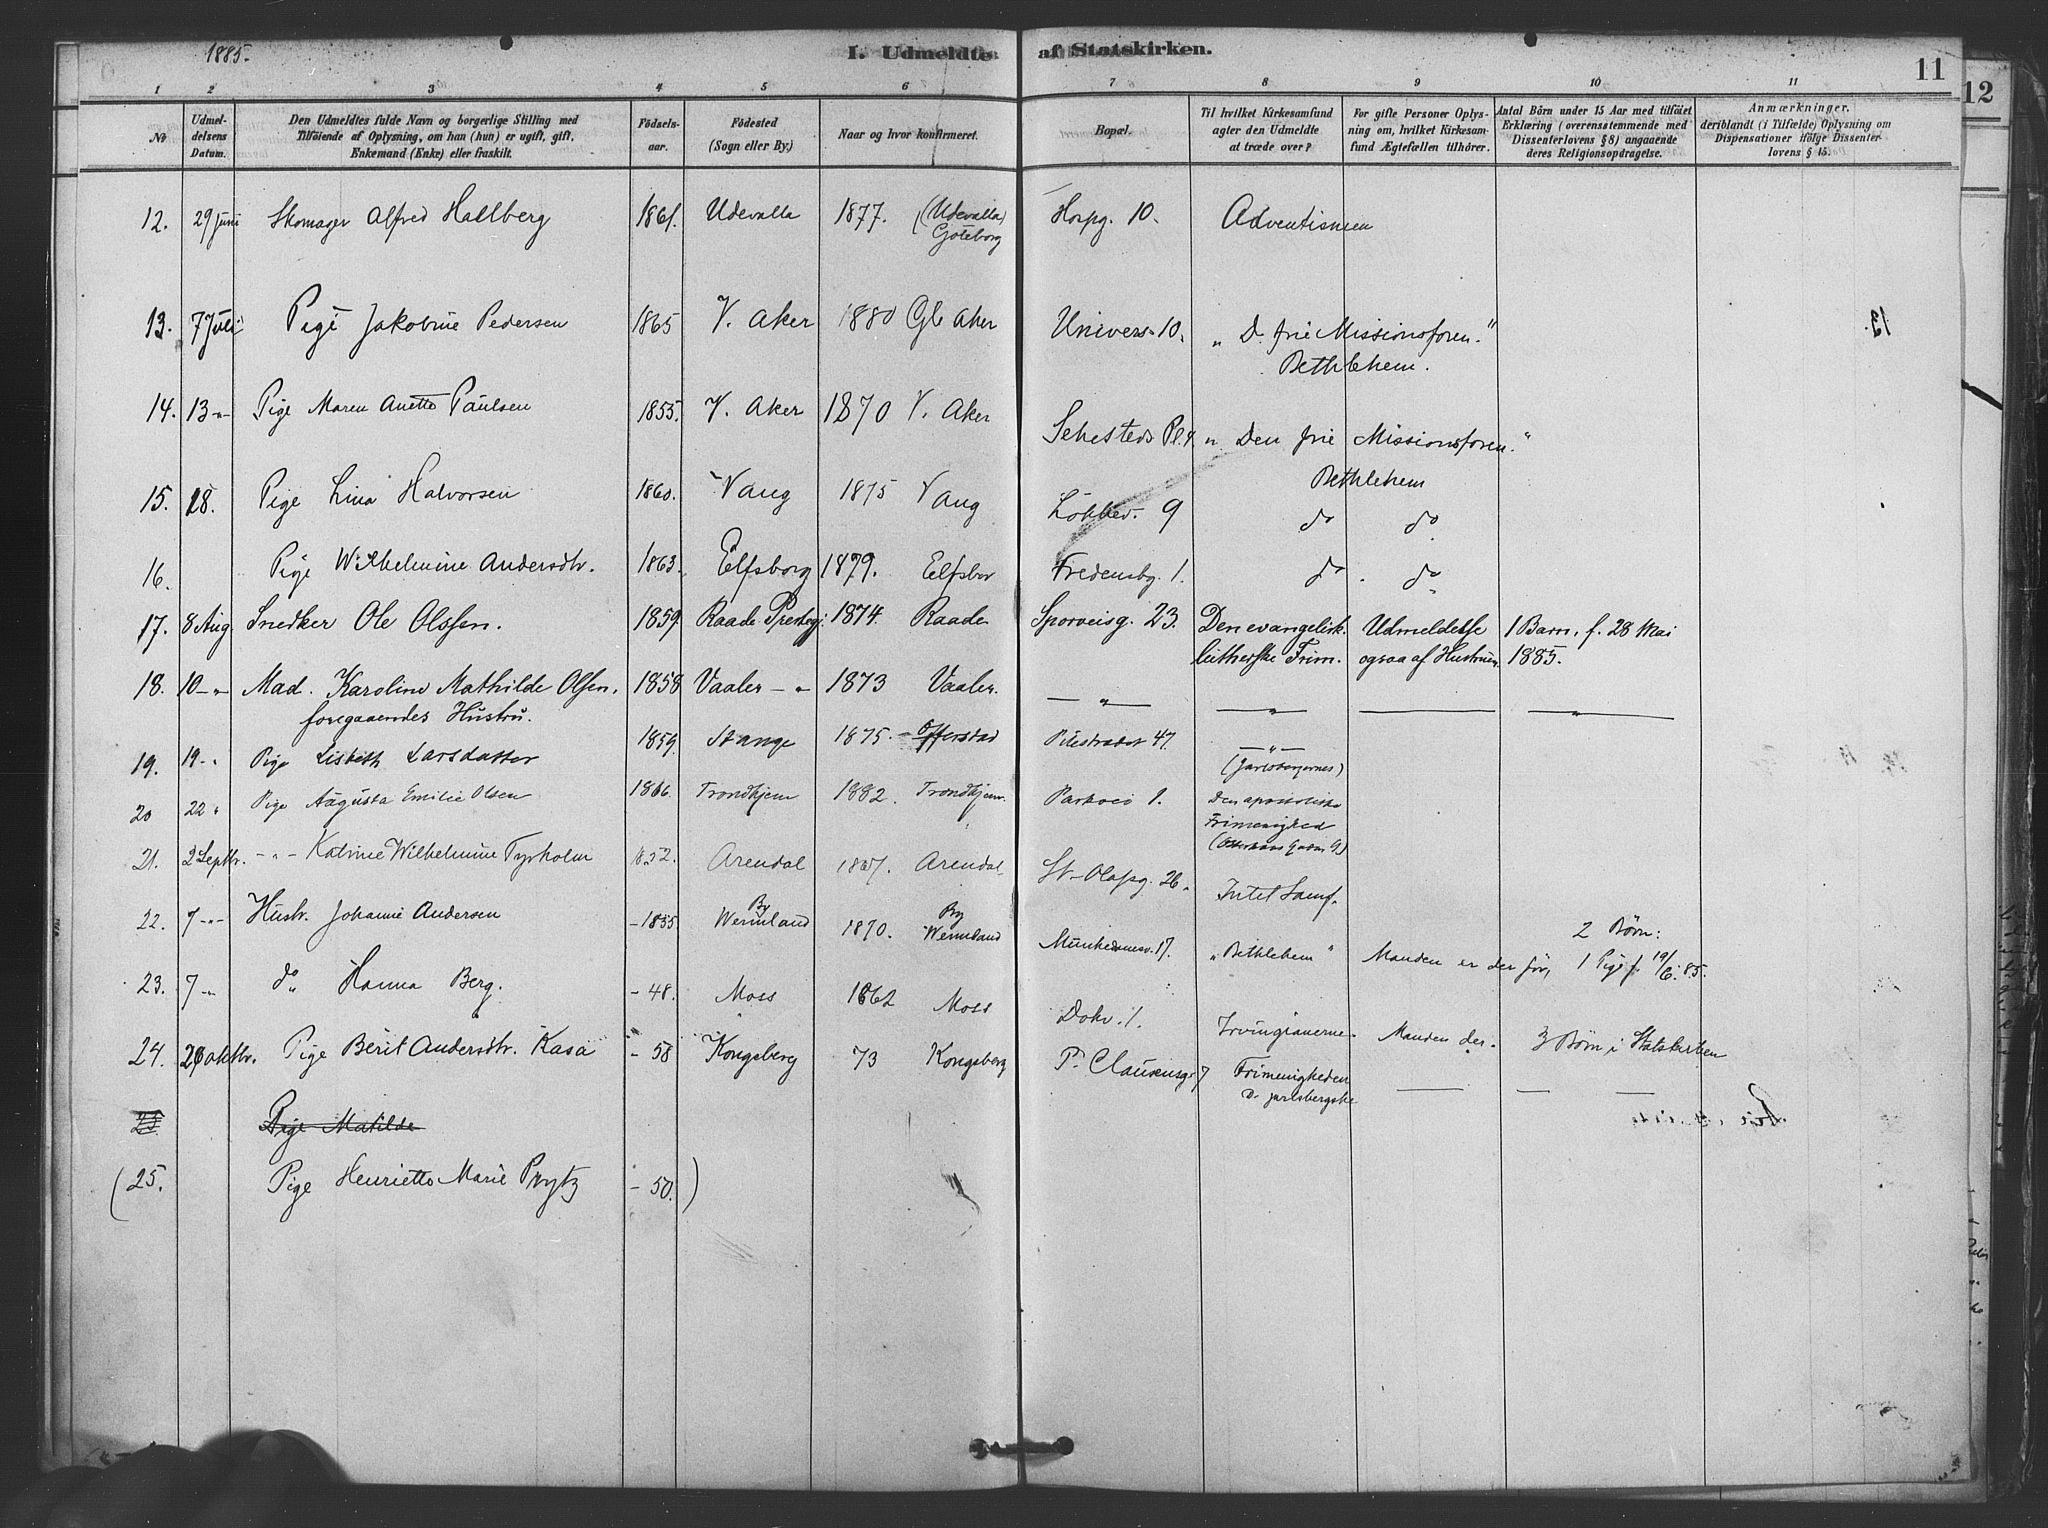 1885.
I. Udmeldte af Statskirken.
11
12
1 2 3 4 5 6 7 8 9 10 11
No
Udmeldelsens Datum.
Den Udmeldtes fulde Navn og borgerlige Stilling med
Tilføiende af Oplysning, om han (hun) er ugift, gift,
Enkemand (Enke) eller fraskilt.
Fødselsaar.
Fødested
(Sogn eller By.)
Naar og hvor konfirmeret.
Bopæl.
Til hvilket Kirkesamfund
agter den Udmeldte
at træde over?
For gifte Personer Oplysning om, hvilket Kirkesamfund Ægtefællen tilhører.
Antal Børn under 15 Aar med tilføiet
Erklæring (overensstemmende med
Dissenterlovens § 8) angaaende
deres Religionsopdragelse.
Anmærkninger,
deriblandt (i Tilfælde) Oplysning om
Dispensationer ifølge Dissenterlovens § 15.
12. 29 Juni Skomager Alfred Hallberg 1861. Udevalla 1877. (Udevalla) Göteborg Horpg. 10. Adventismen
13. 7 Juli Pige Jakobine Pedersen 1865 V. Aker 1880 Gl Aker Univers. 10. "D. frie Missionsforen."
Bethlehem.
14. 13 -"- Pige Maren Anette Paulsen 1855. V. Aker 1870 V. Aker Sehesteds Pl. 9 "Den frie Missionsforen."
Bethlehem
15. 18. Pige Lina Halvorsen 1860. Vang 1875 Vang Løkkev. 9 do do
16. Pige Wilhelmine Andersdtr. 1863. Elfsborg 1879. Elfsbor Fredensbg. 1. do. do
17. 8 Aug. Snedker Ole Olssen. 1859. Raade Prestegj. 1874. Raade Sporveisg. 23. Den evangelisk. Udmeldelse 1 Barn, f. 28 Mai
lutherske Frim. ogsaa af Hustruen 1885.
18. 10 -"- Mad. Karoline Mathilde Olsen, 1858 Vaaler -"- 1873 Vaaler. -"- -"- -"-
foregaaendes Hustru.
19. 19 -"- Pige Lisbeth Larsdatter 1859. Stange 1875. Offerstad Pilestrædet 47 -"-
(Jarlsbergernes)
20 22 " Pige Augusta Emilie Olsen 1866. Trondhjem 1882. Trondhjem. Parkvei 1. Den apostoliske
Frimenighed
21. 2 Septbr. -"- Katrine Wilhelmine Tyrholm 1852. Arendal 1867. Arendal St. Olafsg. 26. Intet Samf.
22. 7 -"- Hustr. Johanne Andersen - 1855 By Wermland 1870. By Wermland Munkedamsv. 17. "Bethlehem" Manden er der før, 2 Børn:
1 Pige f. 19/6. 85.
23. 7 -"- do Hanna Berg. - 48. Moss 1862 Moss Dokv. 1. Irvingianerne. Manden der. 3 Børn i Statskirken
24. 26 oktbr. Pige Berit Andersdtr. Kasa - 58 Kongsberg 73 Kongsberg P. Clausensg 7 Frimenigheden
D. jarlsbergske
25. Pige Matilde
(25. Pige Henriette Marie Prytz - 50.)